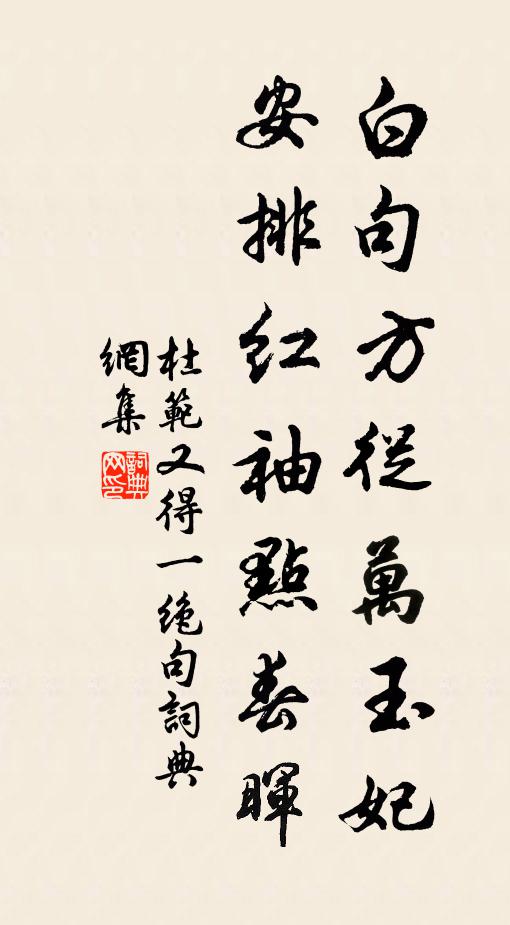 白句方從萬玉妃
安排紅袖點春暉
杜範又得一絕句詞典
網集
詞典网印